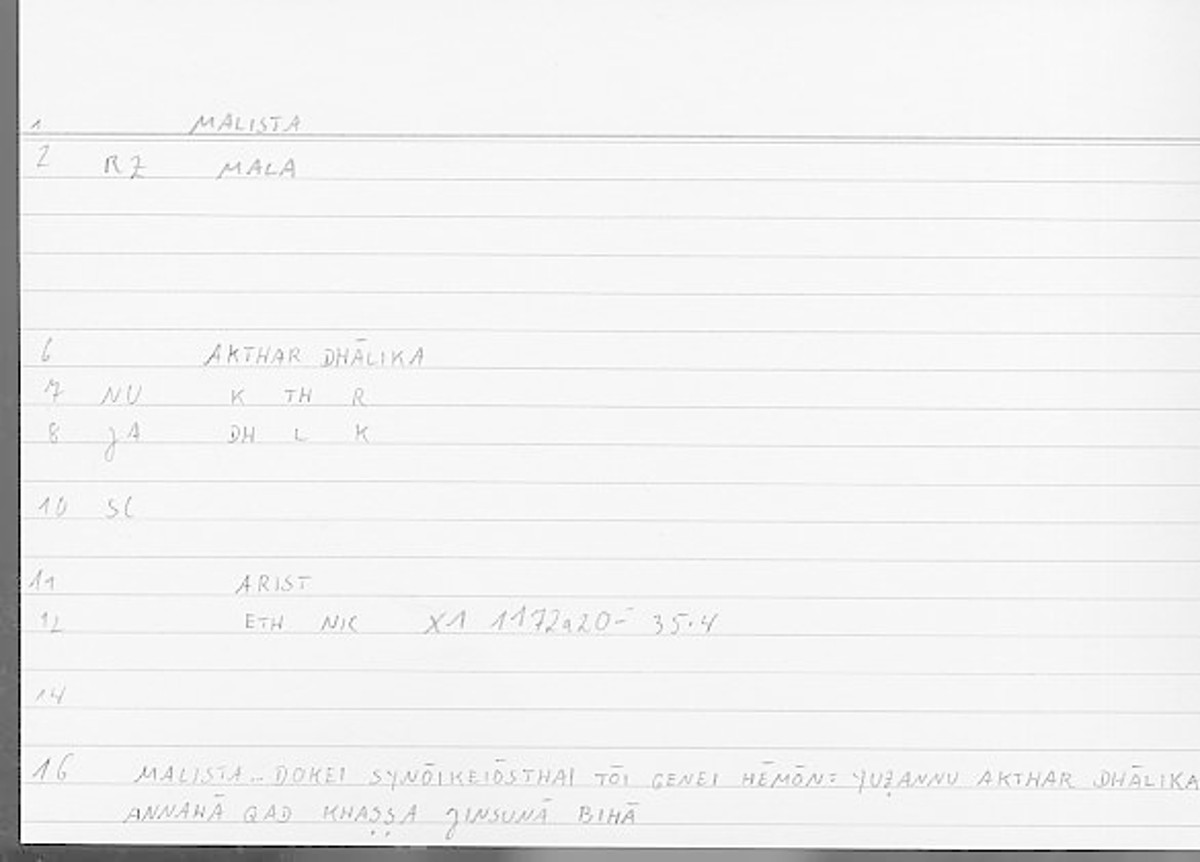 1 MALISTA
2 RZ MALA
6 AKTHAR DHĀLIKA
7 NU K TH R
8 JA DH L K
10 SC
11 ARIST
12 ETH NIC X1 1172a20= 35.4
14
16 MALISTA... DOKEI SYNŌIKEIŌSTHAI TŌI GENEI HĒMŌN: YUẒANNU AKTHAR DHĀLIKA
ANNAHĀ QAD KHAṢṢA JINSUNĀ BIHĀ